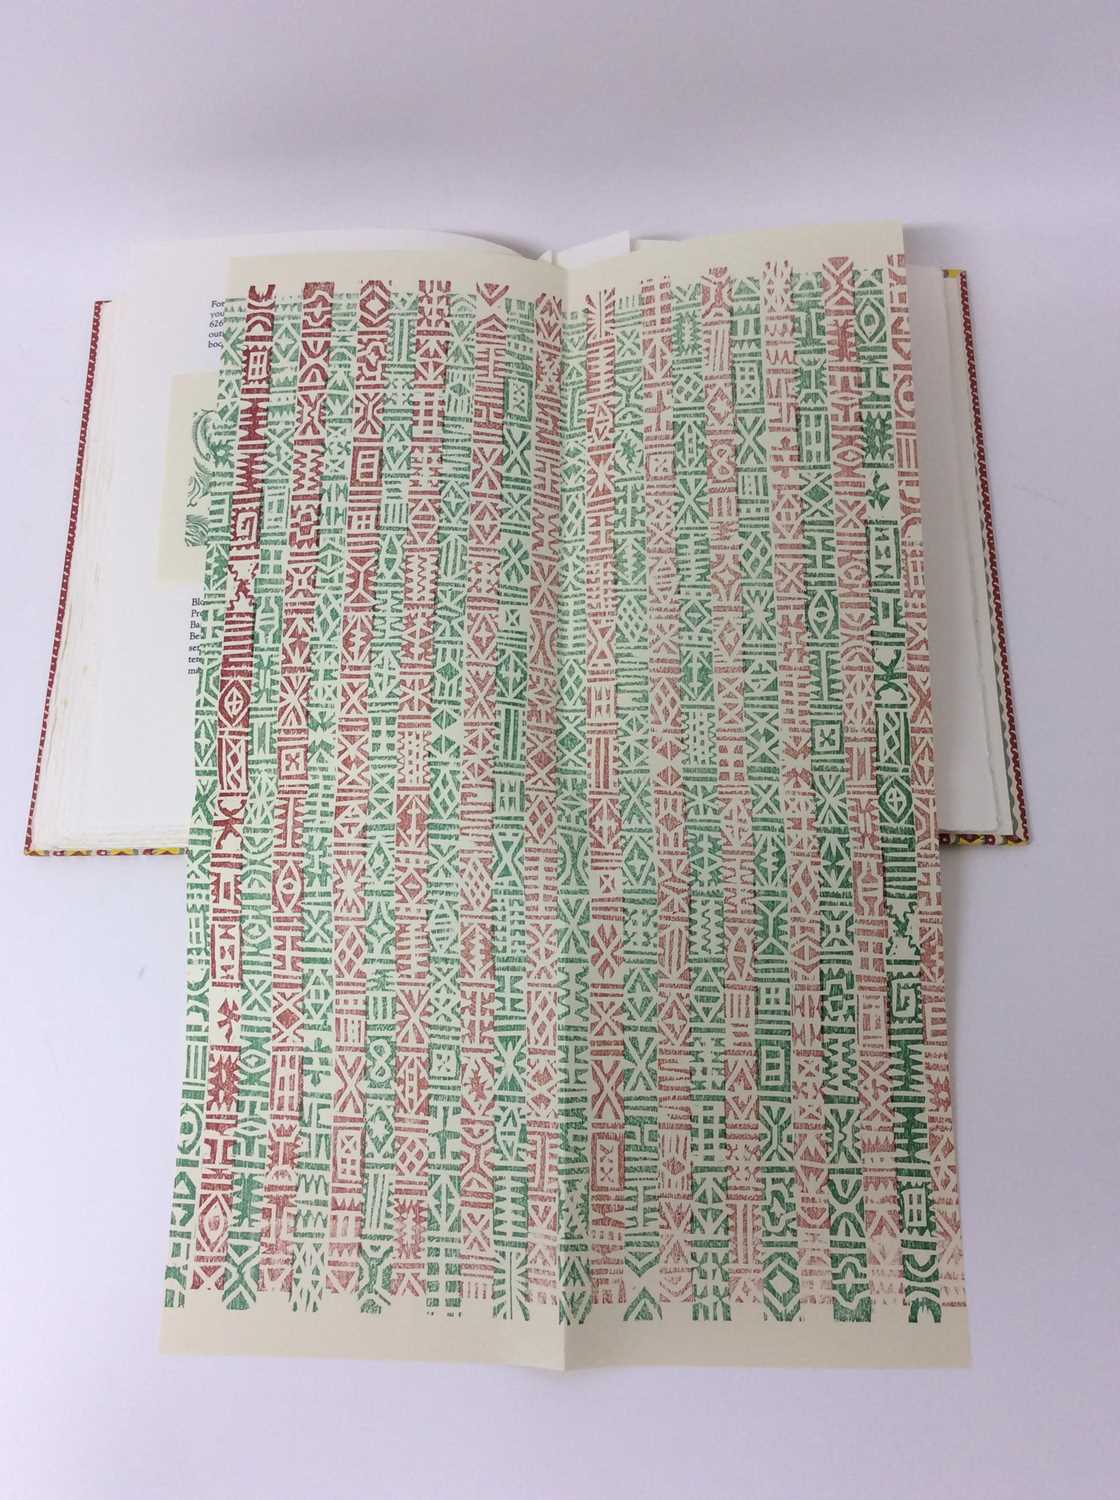 For
you
626
our
boo
Blo
Pre
Ba
Be
ser
ter
mi